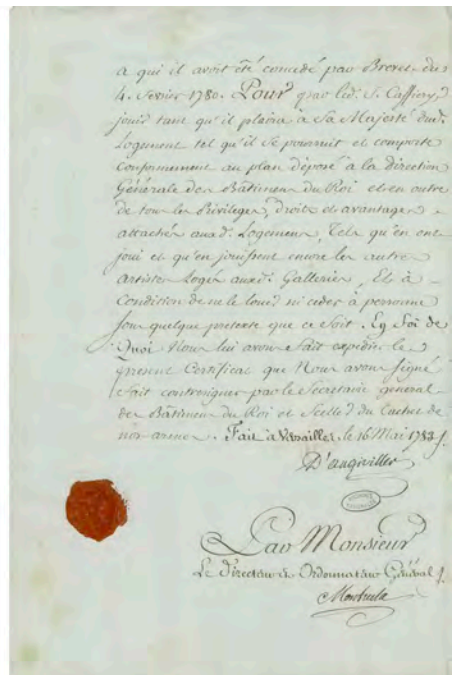 a qui il avoit été concedé par Brevet du
4. Fevrier 1780. Pour par led. S. Caffiery
jouir tant qu'il plaira à Sa Majesté dud.
Logement tel qu'il se poursuit et comporte
conformement au plan déposé à la direction
Générale des Bâtimens du Roi et en outre
de tous les Privileges, droits et avantages
attachés auxd. Logemens, Tels qu'en ont
joui et qu'en jouissent encore les autres
artistes Logés auxd. Galleries, Et à
Condition de ne le louer ni ceder à personne
sous quelque pretexte que ce soit. En Foi de
Quoi Nous lui avons fait expedier le
present Certificat que Nous avons signé
fait contresigner par le Secretaire general
des Bâtimens du Roi et Scellé du Cachet de
nos armes. Fait à Versailles, le 16 Mai 1782
D'angiviller
Par Monsieur
Le Directeur et Ordonnateur Général
Montucla